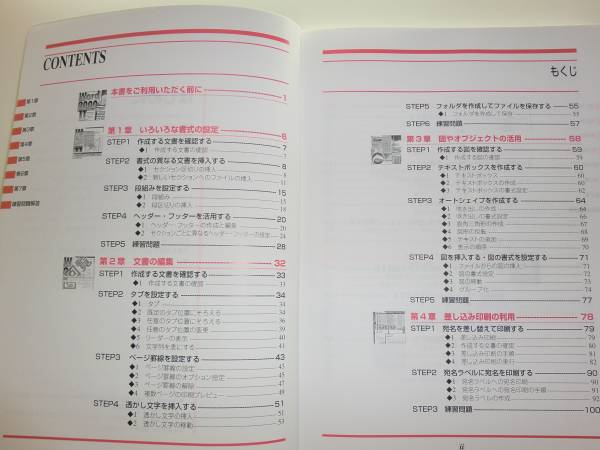 CONTENTS
第1章
第2章
第3章
第4章
第5章
第6章
第7章
練習問題解答
本書をご利用いただく前に 1
第1章 いろいろな書式の設定 6
STEP1 作成する文書を確認する 7
◆1 作成する文書の確認 7
STEP2 書式の異なる文書を挿入する 8
◆1 セクション区切りの挿入 8
◆2 新しいセクションへのファイルの挿入 11
STEP3 段組みを設定する 15
◆1 段組み 15
◆2 段区切りの挿入 18
STEP4 ヘッダー・フッターを活用する 20
◆1 ヘッダー・フッターの作成と編集 20
◆2 セクションごとに異なるヘッダー・フッターの指定 24
STEP5 練習問題 28
第2章 文書の編集 32
STEP1 作成する文書を確認する 33
◆1 作成する文書の確認 33
STEP2 タブを設定する 34
◆1 タブ 34
◆2 既定のタブ位置にそろえる 34
◆3 任意のタブ位置にそろえる 36
◆4 任意のタブ位置の変更 39
◆5 リーダーの表示 40
◆6 文字列を表にする 41
STEP3 ページ罫線を設定する 43
◆1 ページ罫線の設定 43
◆2 ページ罫線のオプション設定 45
◆3 ページ罫線の解除 47
◆4 複数ページの印刷プレビュー 49
STEP4 透かし文字を挿入する 51
◆1 透かし文字の挿入 51
◆2 透かし文字の移動 53
もくじ
STEP5 フォルダを作成してファイルを保存する 55
◆1 フォルダを作成して保存する 55
STEP6 練習問題 57
第3章 図やオブジェクトの活用 58
STEP1 作成する図を確認する 59
◆1 作成する図の確認 59
STEP2 テキストボックスを作成する 60
◆1 テキストボックス 60
◆2 テキストボックスの作成 60
◆3 テキストボックスの書式設定 62
STEP3 オートシェイプを作成する 64
◆1 吹き出しの作成 64
◆2 吹き出しの書式設定 66
◆3 直角三角形の作成 67
◆4 図形の反転 68
◆5 テキストの追加 69
◆6 表示の順序 70
STEP4 図を挿入する・図の書式を設定する 71
◆1 ファイルからの図の挿入 71
◆2 図の書式設定 72
◆3 図の移動 73
◆4 グループ化 74
STEP5 練習問題 77
第4章 差し込み印刷の利用 78
STEP1 宛名を差し替えて印刷する 79
◆1 差し込み印刷 79
◆2 作成する文書の確認 80
◆3 差し込み印刷の手順 81
◆4 差し込み印刷の実行 82
STEP2 宛名ラベルに宛名を印刷する 90
◆1 宛名ラベルへの宛名印刷 90
◆2 宛名ラベルへの宛名印刷の手順 91
◆3 宛名ラベルの作成 92
STEP3 練習問題 100
ii